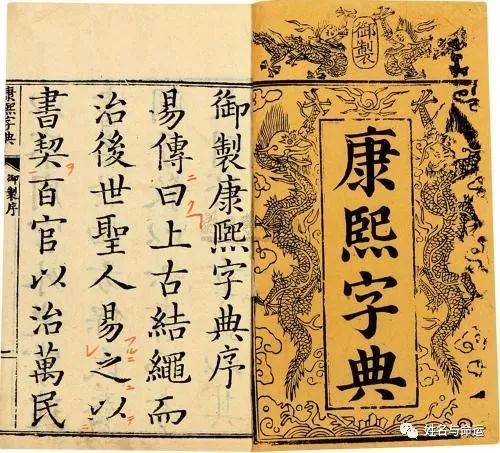 御製
康熙字典
御製康熙字典序
易傳曰上古結繩而
治後世聖人易之以
書契百官以治萬民
康熙字典
御製序
一
姓名与命运